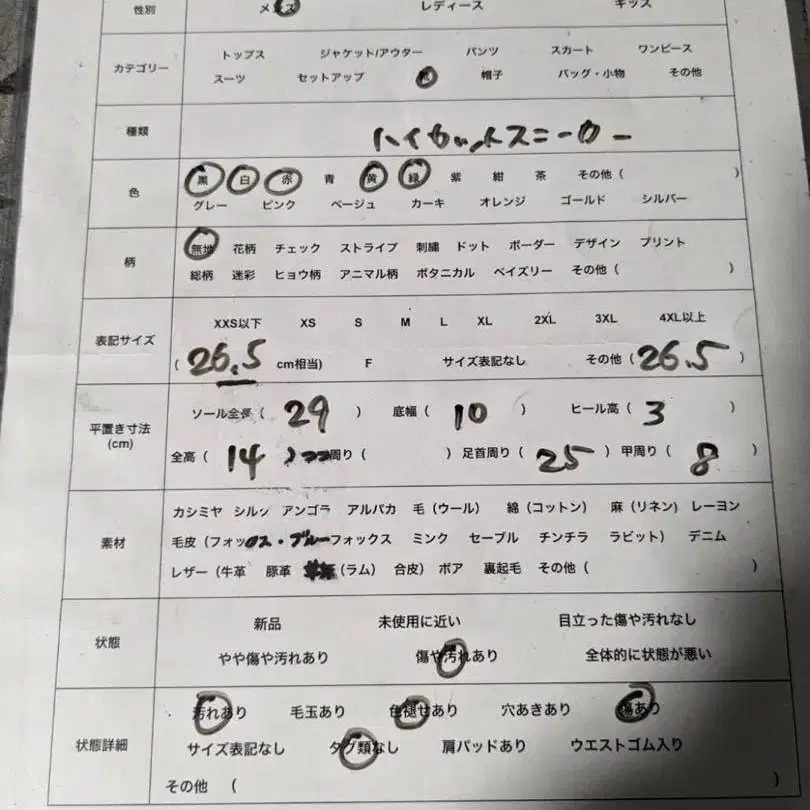 性別 メンズ レディース キッズ
トップス ジャケット/アウター パンツ スカート ワンピース
カテゴリー
スーツ セットアップ 靴 帽子 バッグ・小物 その他
種類 ハイカットスニーカー
黒 白 赤 青 黄 緑 紫 紺 茶 その他 ( )
色
グレー ピンク ベージュ カーキ オレンジ ゴールド シルバー
無地 花柄 チェック ストライプ 刺繍 ドット ボーダー デザイン プリント
柄
総柄 迷彩 ヒョウ柄 アニマル柄 ボタニカル ペイズリー その他 ( )
XXS以下 XS S M L XL 2XL 3XL 4XL以上
表記サイズ
( 26.5 cm相当) F サイズ表記なし その他 ( 26.5 )
ソール全長 ( 29 ) 底幅 ( 10 ) ヒール高 ( 3 )
平置き寸法
(cm)
全高 ( 14 ) 周り ( ) 足首周り ( 25 ) 甲周り ( 8 )
カシミヤ シルク アンゴラ アルパカ 毛 (ウール) 綿 (コットン) 麻 (リネン) レーヨン
素材 毛皮 (フォックス・ブルーフォックス ミンク セーブル チンチラ ラビット) デニム
レザー (牛革 豚革 (ラム) 合皮) ボア 裏起毛 その他 ( )
新品 未使用に近い 目立った傷や汚れなし
状態
やや傷や汚れあり 傷や汚れあり 全体的に状態が悪い
汚れあり 毛玉あり 色褪せあり 穴あきあり 傷あり
状態詳細 サイズ表記なし タグ類なし 肩パッドあり ウエストゴム入り
その他 ( )